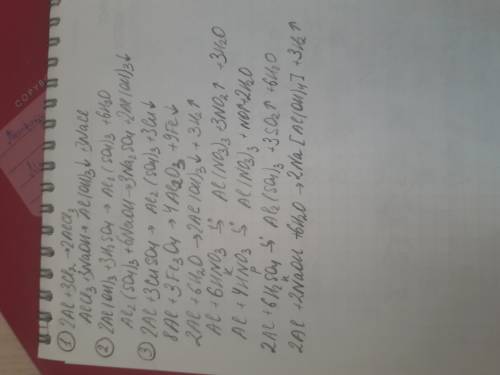 ① 2Al + 3Cl₂ → 2AlCl₃
AlCl₃ + 3NaOH → Al(OH)₃↓ 3NaCl
② 2Al(OH)₃ + 3H₂SO₄ → Al₂(SO₄)₃ + 6H₂O
Al₂(SO₄)₃ + 6NaOH → 3Na₂SO₄ + 2Al(OH)₃↓
③ 2Al + 3CuSO₄ → Al₂(SO₄)₃ + 3Cu↓
8Al + 3Fe₃O₄ → 4Al₂O₃ + 9Fe↓
2Al + 6H₂O → 2Al(OH)₃↓ + 3H₂↑
Al + 6HNO₃ к → t° Al(NO₃)₃ + 3NO₂↑ + 3H₂O
Al + 4HNO₃ р → t° Al(NO₃)₃ + NO↑ + 2H₂O
2Al + 6H₂SO₄ к → t° Al₂(SO₄)₃ + 3SO₂↑ + 6H₂O
2Al + 2NaOH + 6H₂O → 2Na[Al(OH)₄] + 3H₂↑
COPYB